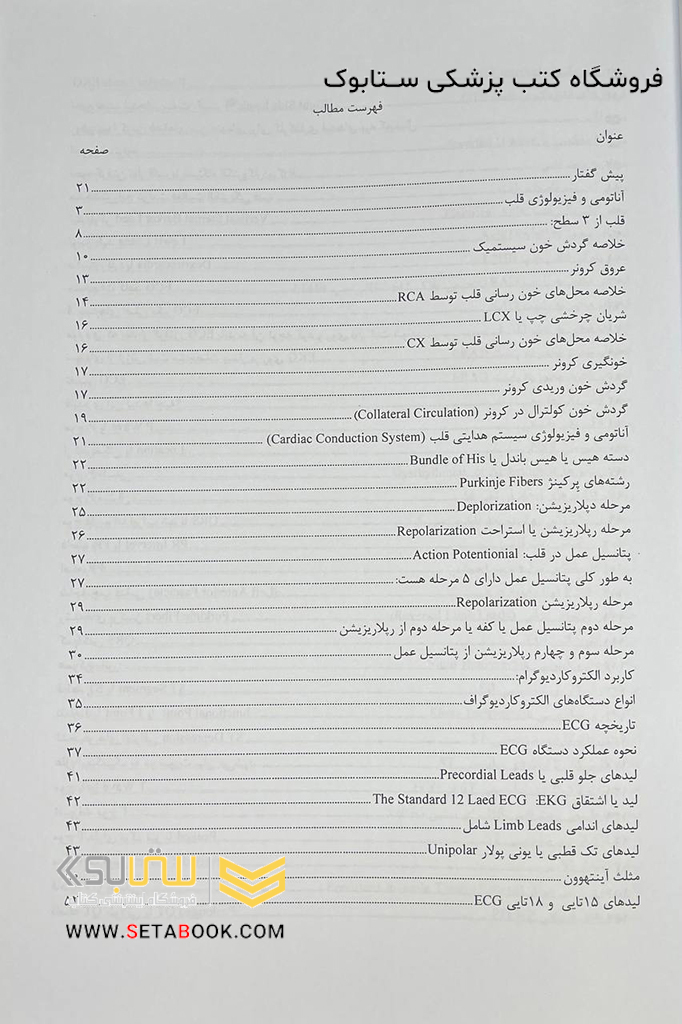 فروشگاه کتب پزشکی ستابوک
فهرست مطالب
عنوان
صفحه
پیش گفتار ۲۱
آناتومی و فیزیولوژی قلب ۳
قلب از ۳ سطح: ۸
خلاصه گردش خون سیستمیک ۱۰
عروق کرونر ۱۳
خلاصه محل‌های خون رسانی قلب توسط RCA ۱۴
شریان چرخشی چپ یا LCX ۱۶
خلاصه محل‌های خون رسانی قلب توسط CX ۱۶
خونگیری کرونر ۱۷
گردش خون وریدی کرونر ۱۷
گردش خون کولترال در کرونر (Collateral Circulation) ۱۹
آناتومی و فیزیولوژی سیستم هدایتی قلب (Cardiac Conduction System) ۲۱
دسته هیس یا هیس باندل یا Bundle of His ۲۲
رشته‌های پرکینژ Purkinje Fibers ۲۲
مرحله دپلاریزیشن: Deplorization ۲۵
مرحله رپلاریزیشن یا استراحت Repolarization ۲۶
پتانسیل عمل در قلب: Action Potentionial ۲۷
به طور کلی پتانسیل عمل دارای ۵ مرحله هست: ۲۷
مرحله رپلاریزیشن Repolarization ۲۹
مرحله دوم پتانسیل عمل یا کفه یا مرحله دوم از رپلاریزیشن ۲۹
مرحله سوم و چهارم رپلاریزیشن از پتانسیل عمل ۳۰
کاربرد الکتروکاردیوگرام: ۳۴
انواع دستگاه‌های الکتروکاردیوگراف ۳۵
تاریخچه ECG ۳۶
نحوه عملکرد دستگاه ECG ۳۷
لیدهای جلو قلبی یا Precordial Leads ۴۱
لید یا اشتقاق EKG: The Standard 12 Laed ECG ۴۲
لیدهای اندامی Limb Leads شامل ۴۳
لیدهای تک قطبی یا یونی پولار Unipolar ۴۳
مثلث آینتهوون
لیدهای ۱۵تایی و ۱۸تایی ECG
ستابوک
فروشگاه اینترنتی کتاب
WWW.SETABOOK.COM